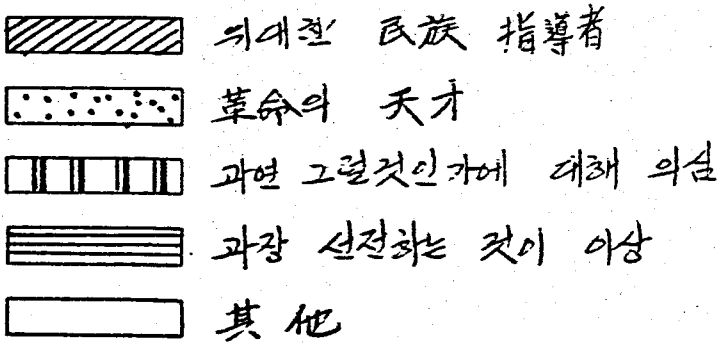 위대한 民族 指導者
革命의 天才
과연 그럴것인가에 대해 의심
과장 선전하는 것이 이상
其他